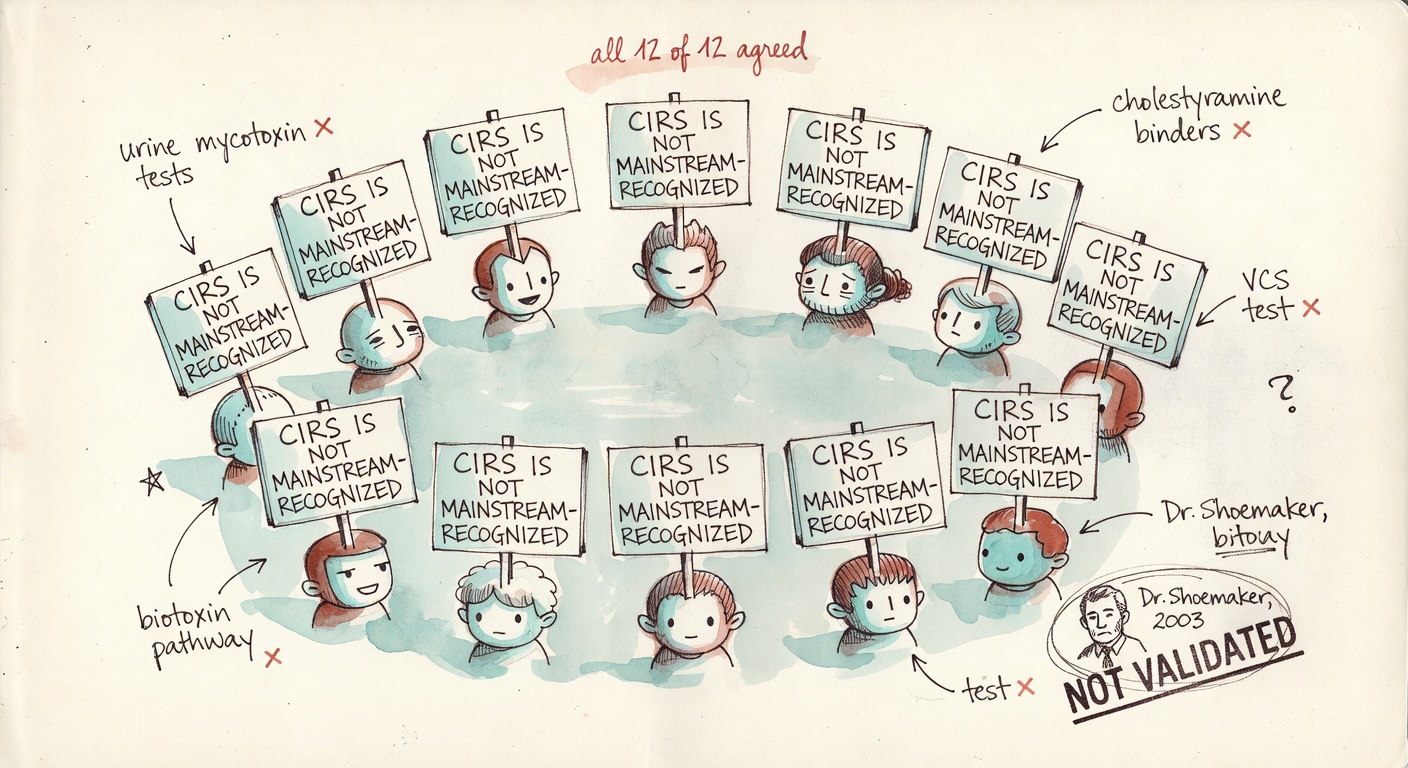 all 12 of 12 agreed
urine mycotoxin ×
tests
cholestyramine
binders ×
CIRS IS
NOT
MAINSTREAM-
RECOGNIZED
CIRS IS
NOT
MAINSTREAM-
RECOGNIZED
CIRS IS
NOT
MAINSTREAM-
RECOGNIZED
CIRS IS
NOT
MAINSTREAM-
RECOGNIZED
CIRS IS
NOT
MAINSTREAM-
RECOGNIZED
CIRS IS
NOT
MAINSTREAM-
RECOGNIZED
CIRS IS
NOT
MAINSTREAM-
RECOGNIZED
VCS
test ×
?
CIRS IS
NOT
MAINSTREAM-
RECOGNIZED
CIRS IS
NOT
MAINSTREAM-
RECOGNIZED
CIRS IS
NOT
MAINSTREAM-
RECOGNIZED
CIRS IS
NOT
MAINSTREAM-
RECOGNIZED
CIRS IS
NOT
MAINSTREAM-
RECOGNIZED
Dr. Shoemaker,
biotoxin
pathway ×
Dr. Shoemaker,
2003
NOT VALIDATED
test ×